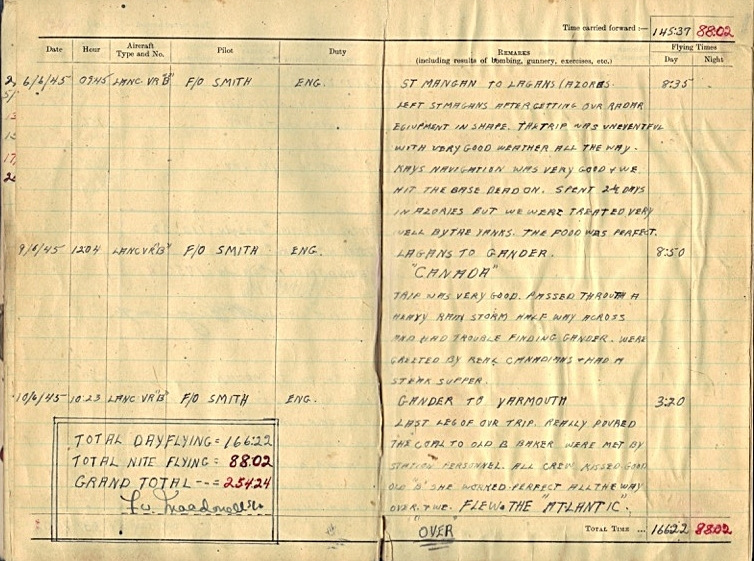 Time carried forward :— 145:37 88:02
Date Hour Aircraft Type and No. Pilot Duty REMARKS (including results of bombing, gunnery, exercises, etc.) Flying Times Day Night
6/6/45 0945 LANC VR"B" F/O SMITH ENG. ST MANGAN TO LAGANS (AZORES. 8:35
LEFT ST MAGANS AFTER GETTING OUR RADAR
EQIUPMENT IN SHAPE. THE TRIP WAS UNEVENTFUL
WITH VERY GOOD WEATHER ALL THE WAY.
KAYS NAVIGATION WAS VERY GOOD + WE
HIT THE BASE DEAD ON. SPENT 2½ DAYS
IN AZORIES BUT WE WERE TREATED VERY
WELL BY THE YANKS. THE FOOD WAS PERFECT.
9/6/45 1204 LANC VR"B" F/O SMITH ENG. LAGANS TO GANDER. 8:50
"CANADA"
TRIP WAS VERY GOOD. PASSED THROUGH A
HEAVY RAIN STORM HALF WAY ACROSS
AND HAD TROUBLE FINDING GANDER. WERE
GREETED BY REAL CANADIANS + HAD A
STEAK SUPPER.
10/6/45 10:23 LANC VR"B" F/O SMITH ENG. GANDER TO YARMOUTH 3:20
LAST LEG OF OUR TRIP. REALLY POURED
THE COAL TO OLD B BAKER WERE MET BY
STATION PERSONNEL. ALL CREW KISSED GOOD
OLD "B" SHE WORKED PERFECT ALL THE WAY
OVER. + WE. FLEW THE "ATLANTIC".
"OVER"
TOTAL DAY FLYING = 166:22
TOTAL NITE FLYING = 88:02
GRAND TOTAL --= 254 24
TOTAL TIME ... 166 22 88:02